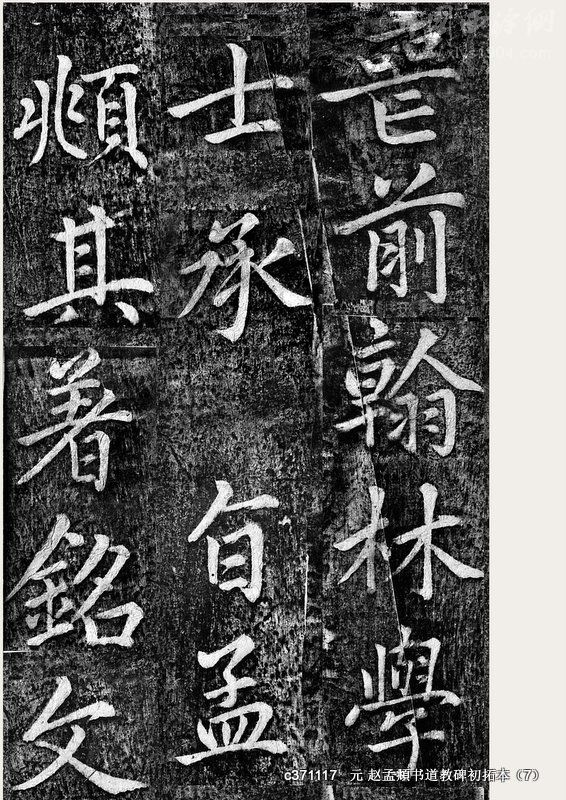 前翰林學
士承旨孟
頫其著銘文
c371117 元 赵孟頫书道教碑初拓本（7）